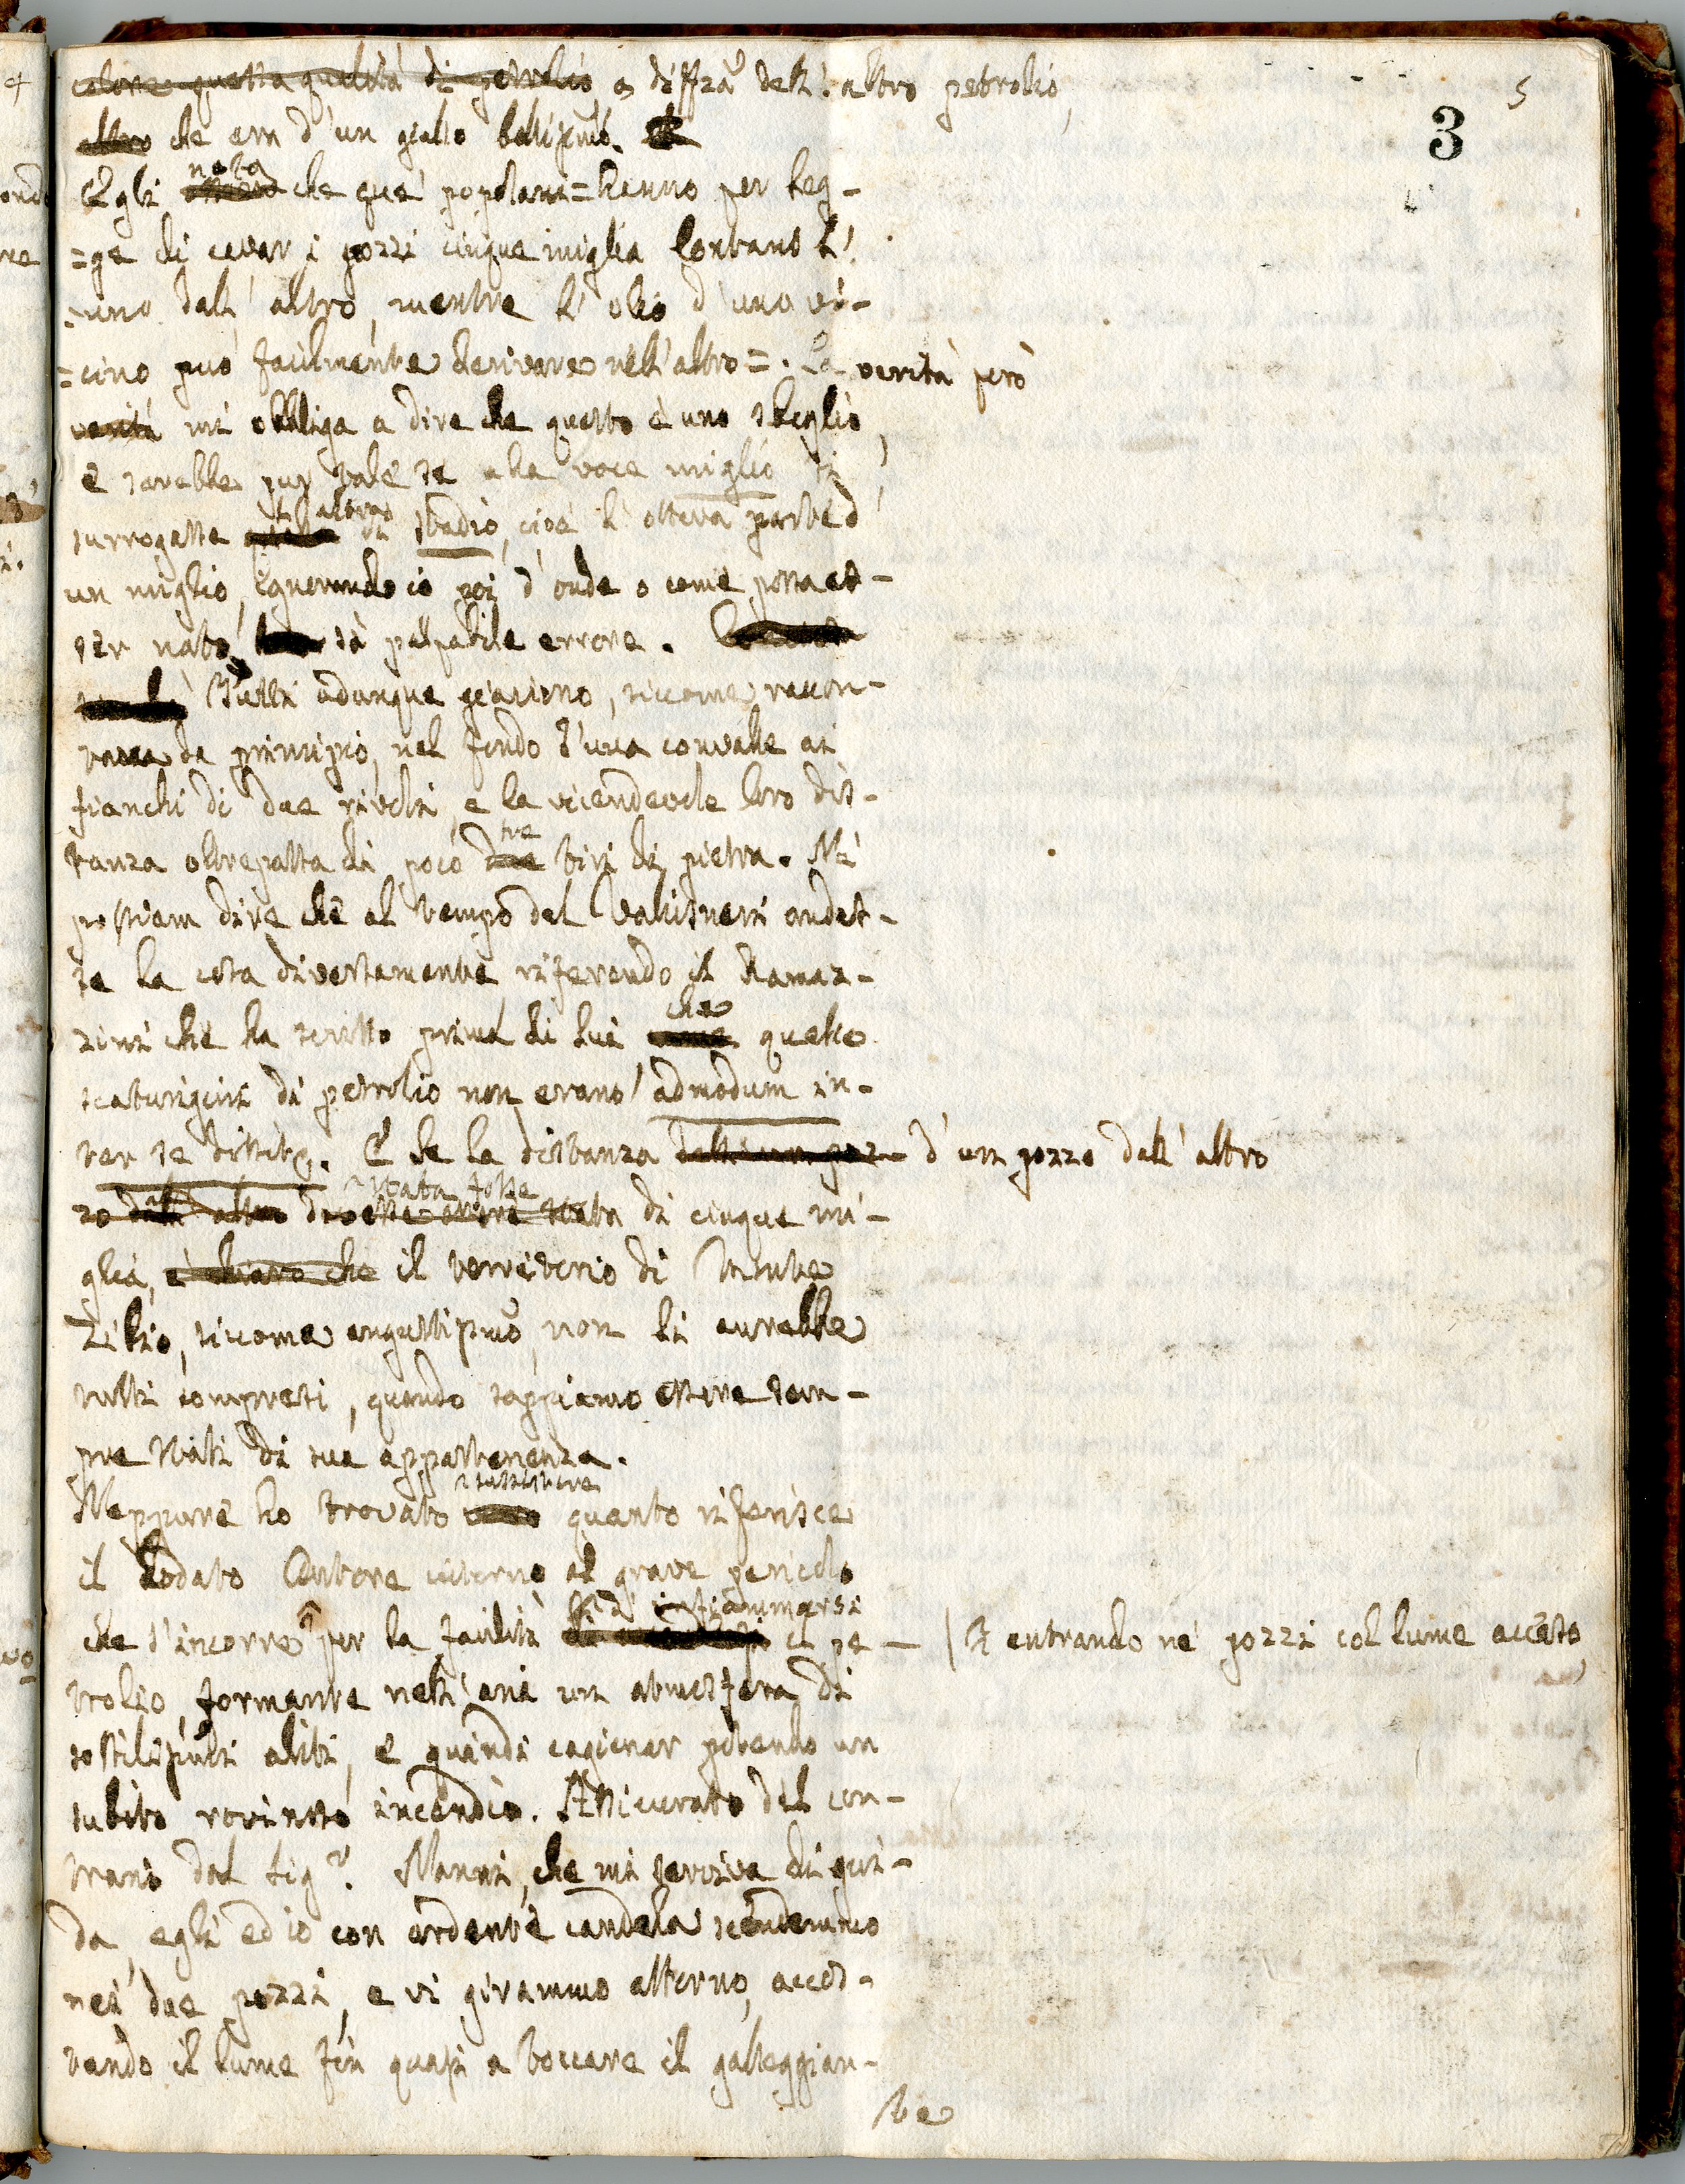 5
3
colore questa qualità di petrolio, a diffza dell' altro petrolio,
altro che era d'un giallo bellissimo.
Egli nota che que' popolani = hanno per leg-
=ge di cavar i pozzi cinque miglia lontano l'
=uno dall' altro, mentre l' olio d' uno vi-
=cino può facilmente derivare nell' altro =. La verità però
verità mi obbliga a dire che questo è uno sbaglio,
e sarebbe pur tale se alla voce miglio si
surrogasse l'altra di stadio, cioè l' ottava parte d'
un miglio, ignorando io poi d' onde o come possa es-
ser nato sì palpabile errore.
Tutti adunque giacciono, siccome raccon-
tava da principio, nel fondo d'una convalle ai
fianchi di due rivoli, e la vicendevole loro dis-
tanza oltrepassa di poco due tre tiri di pietra. Nè
possiam dire che al tempo del Vallisneri andas-
se la cosa diversamente, riferendo il Ramaz-
zini che ha scritto prima di lui che quelle
scaturigini di petrolio non erano admodum in-
ter se dissitæ. E se la distanza dell' un poz- d' un pozzo dall' altro
zo dall' altro stata fosse stata di cinque mi-
glia, è chiaro che il territorio di Monte
Zibio, siccome angustissimo, non li avrebbe
tutti compresi, quando sappiamo essere sem-
pre stati di sua appartenenza.
Neppure ho trovato sussistere quanto riferisce
il lodato Autore intorno al grave pericolo
che s'incorre per la facilità di infiammarsi il pe- / entrando ne' pozzi col lume acceso,
trolio, formante nell' aria un atmosfera di
sottilissimi aliti, e quindi cagionar potendo un
subito rovinoso incendio. Assicurato del con-
trario dal Sigr. Manni, che mi serviva di gui-
da, egli ed io con ardente candela scendemmo
nei due pozzi, e vi girammo attorno, accos-
tando il lume fin quasi a toccare il galleggian-
te